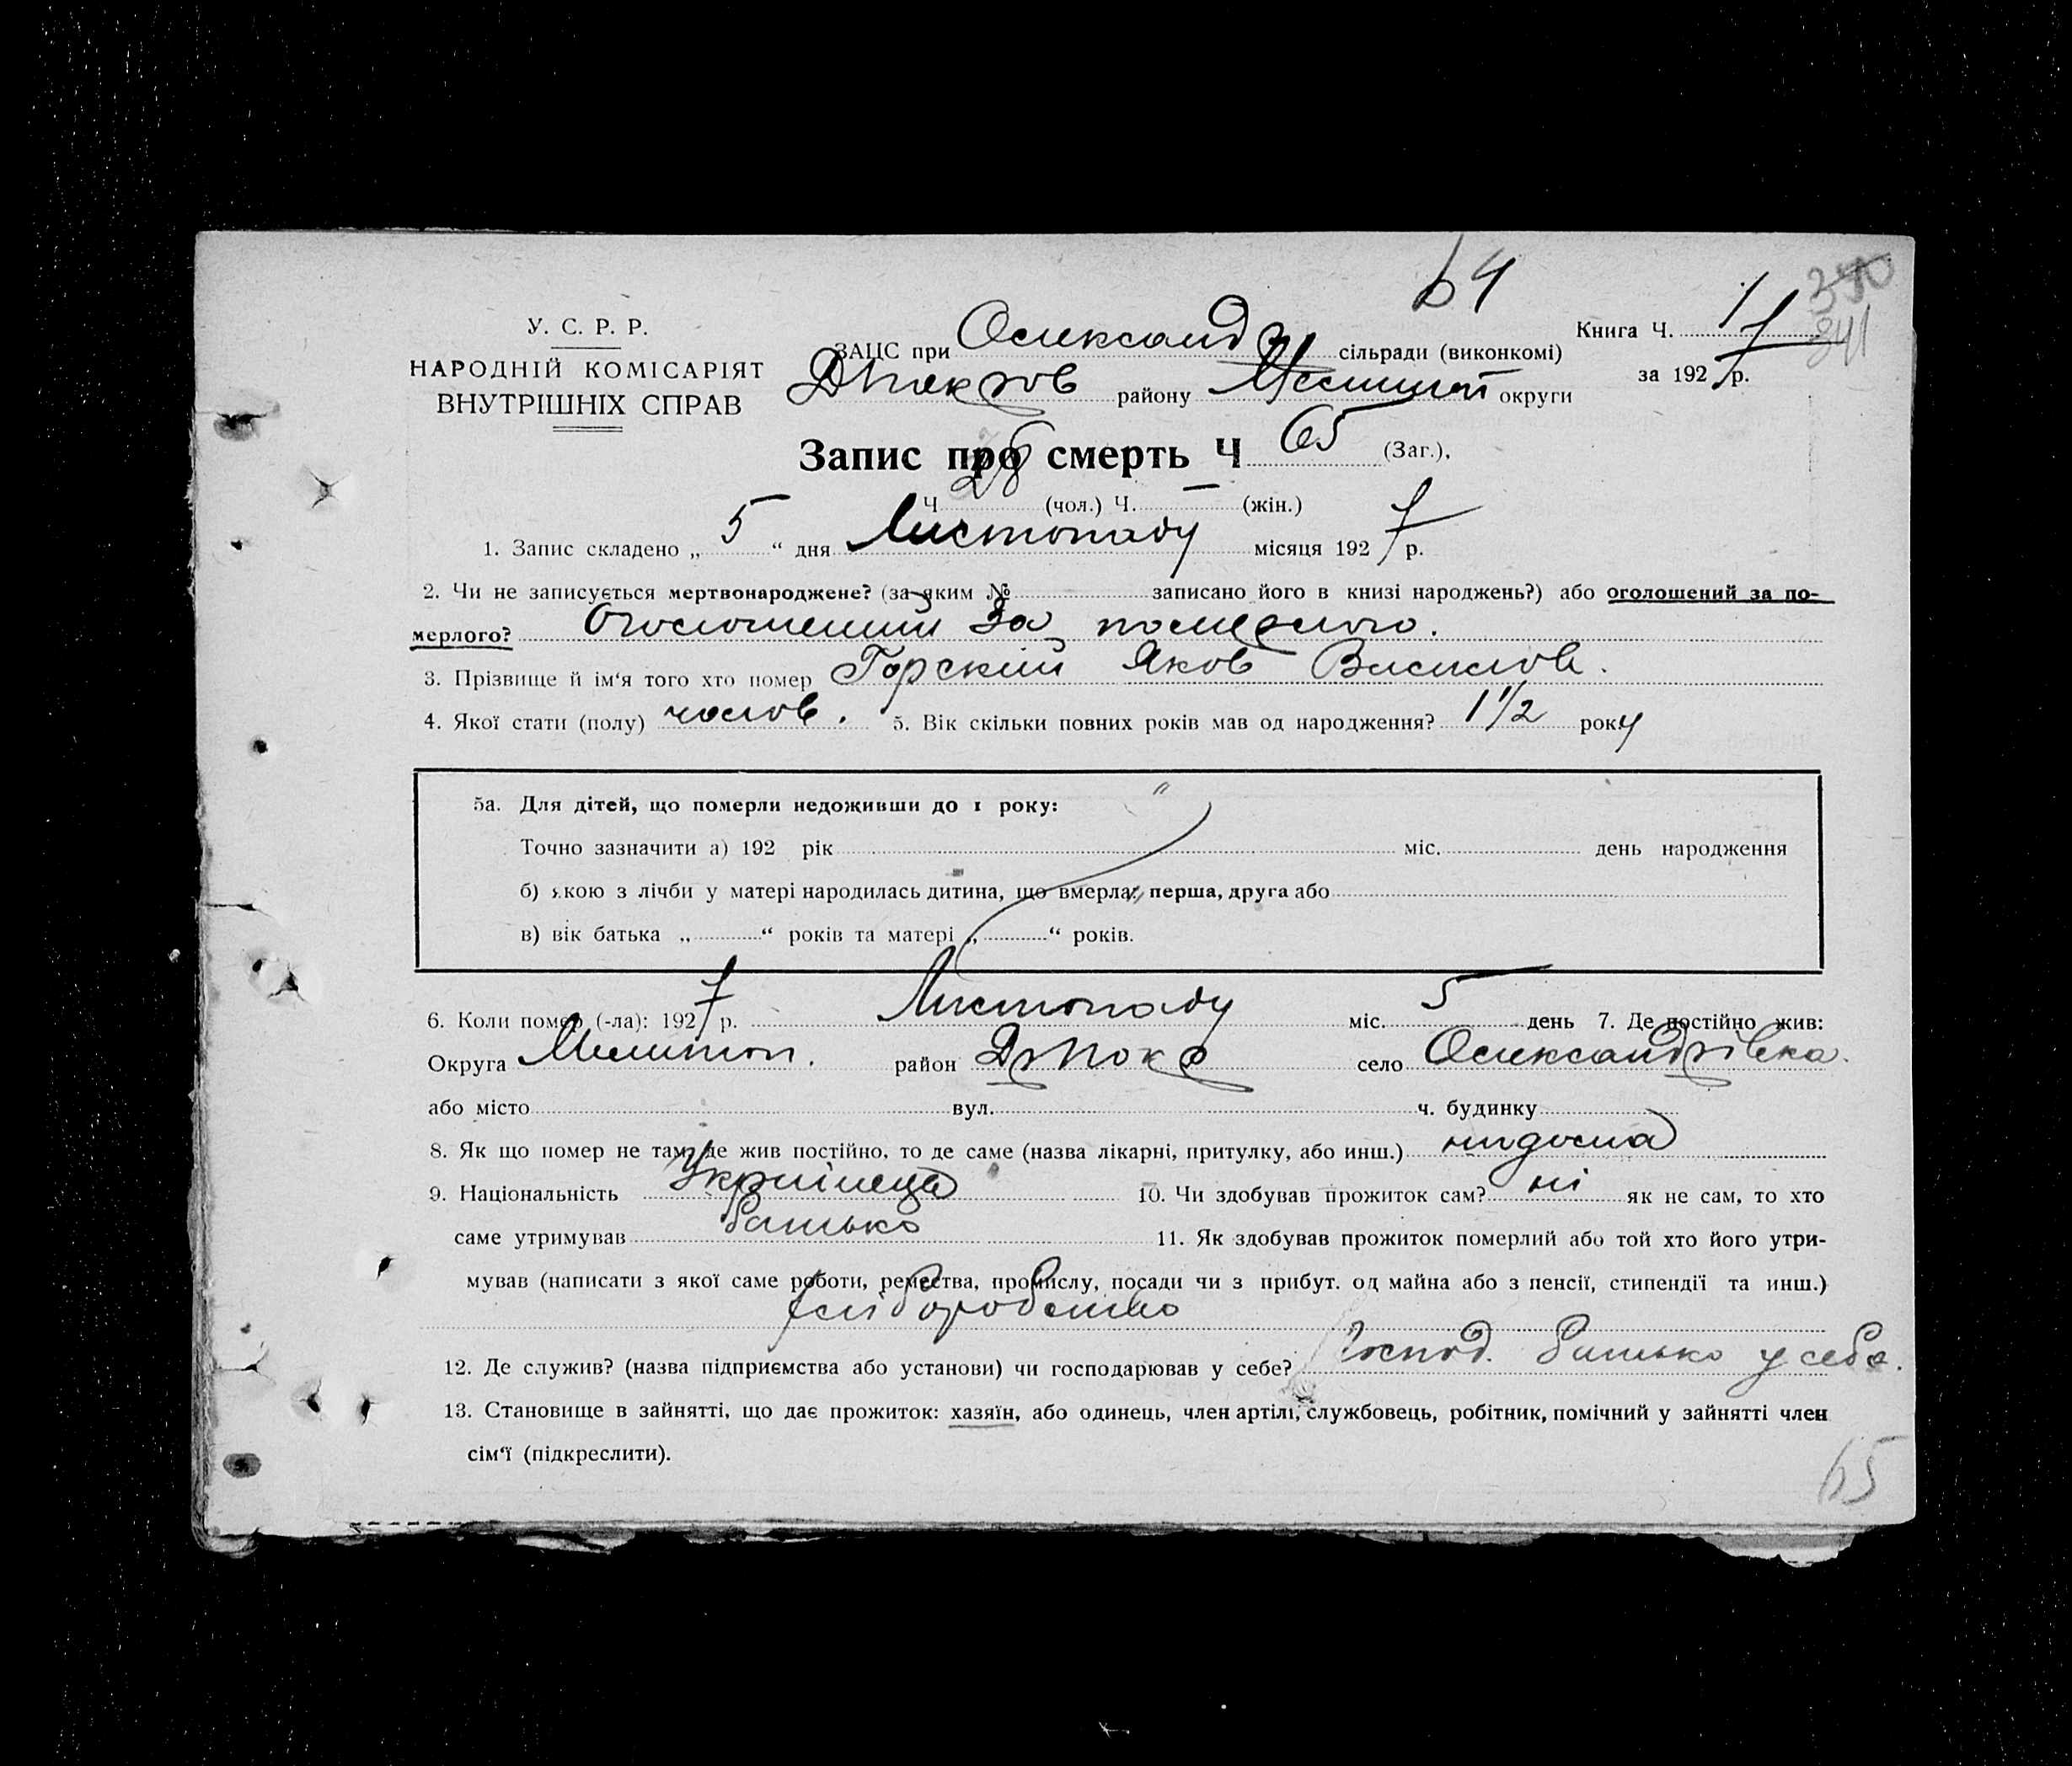 64
У. С. Р. Р.
НАРОДНІЙ КОМІСАРІЯТ
ВНУТРІШНІХ СПРАВ
ЗАЦС при Олександр сільради (виконкомі)
району Мелитоп округи
Книга Ч. 1
за 1927 р.
341
Запис про смерть Ч 65 (Заг.),
Ч 28 (чол.) Ч. — (жін.)
1. Запис складено „ 5 “ дня Листопаду місяця 1927 р.
2. Чи не записується мертвонароджене? (за яким № записано його в книзі народжень?) або оголошений за по-
мерлого? Оголошений за померлого.
3. Прізвище й ім‘я того хто помер Горский Яков Васильов.
4. Якої стати (полу) чолов. 5. Вік скільки повних років мав од народження? 1 1/2 року
5а. Для дітей, що померли недоживши до 1 року:
Точно зазначити а) 192 рік міс. день народження
б) якою з лічби у матері народилась дитина, що вмерла: перша, друга або
в) вік батька „ “ років та матері „ “ років.
6. Коли помер (-ла): 1927 р. Листопаду міс. 5 день 7. Де постійно жив:
Округа Мелитоп. район село Олександрівка.
або місто вул. ч. будинку
8. Як що помер не там, де жив постійно, то де саме (назва лікарні, притулку, або инш.) нидома
9. Національність Українець 10. Чи здобував прожиток сам? ні як не сам, то хто
саме утримував батько 11. Як здобував прожиток померлий або той хто його утри-
мував (написати з якої саме роботи, ремества, промислу, посади чи з прибут. од майна або з пенсії, стипендії та инш.)
Хліборобство
12. Де служив? (назва підприємства або установи) чи господарював у себе? Господ. батько у себе.
13. Становище в зайнятті, що дає прожиток: хазяїн, або одинець, член артілі, службовець, робітник, помічний у зайнятті член
сім‘ї (підкреслити).
65